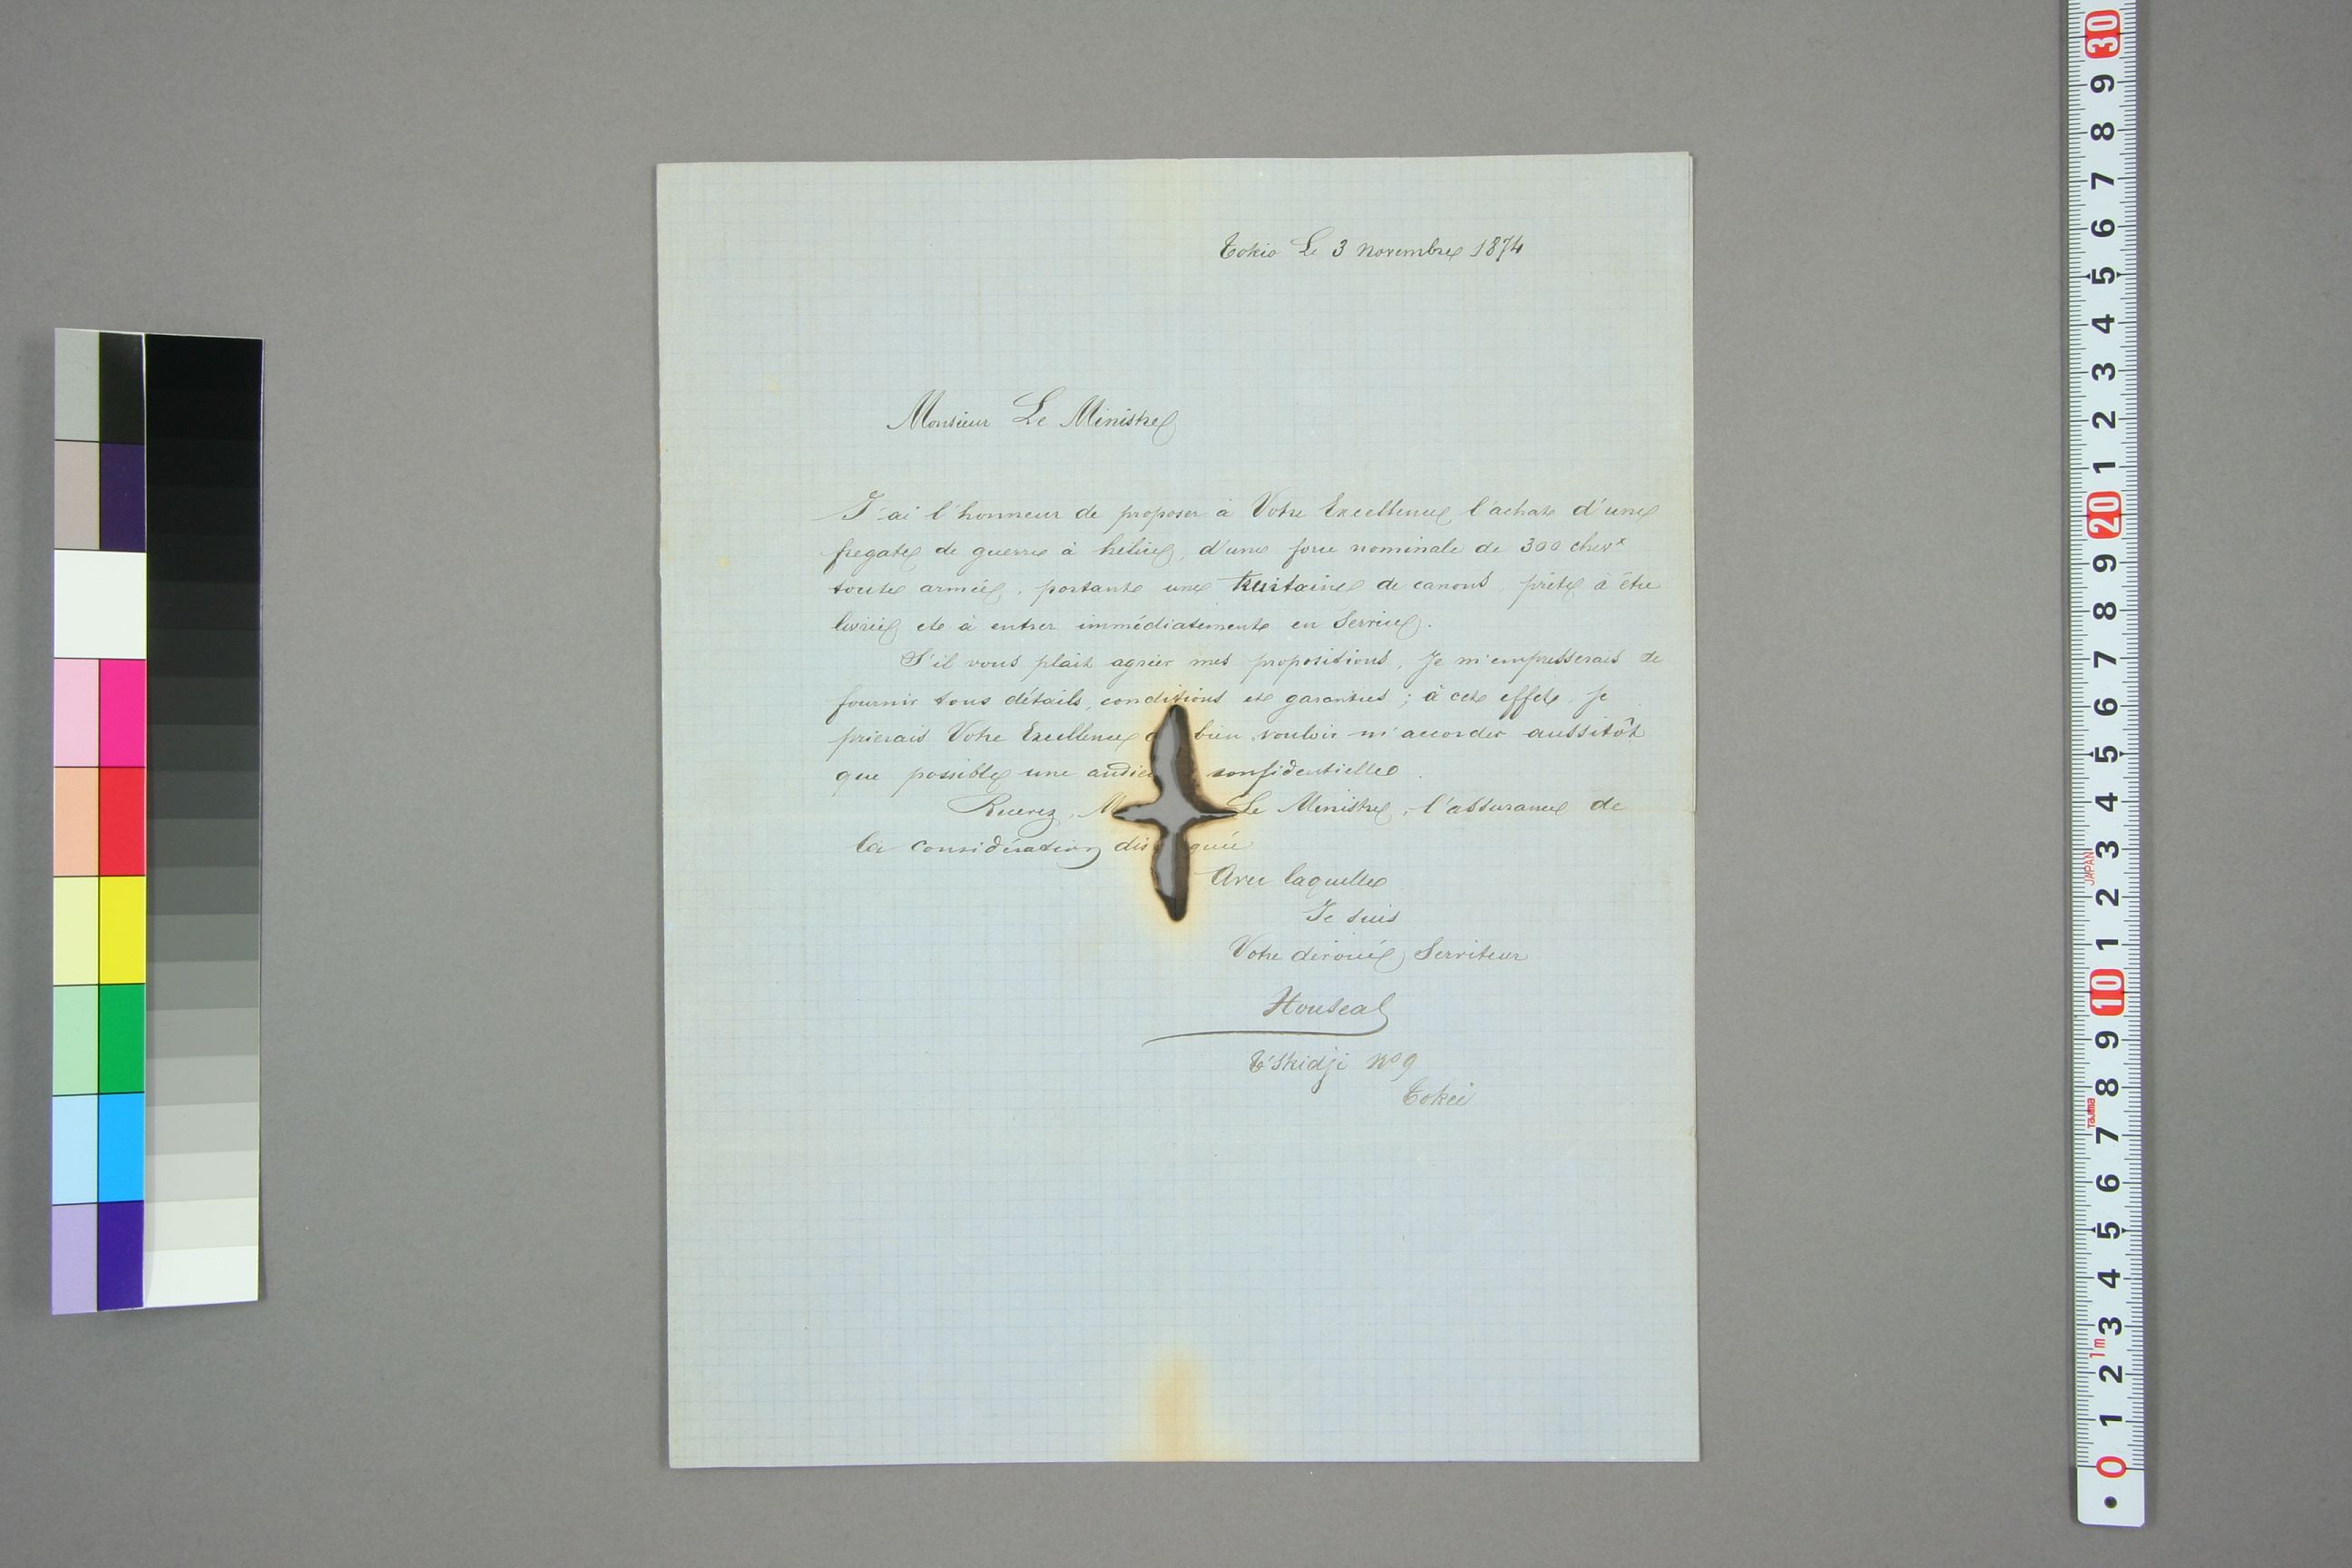 Tokio Le 3 Novembre 1874
Monsieur Le Ministre
J'ai l'honneur de proposer à Votre Excellence l'achat d'une
fregate de guerre à hélice, d'une force nominale de 300 chevx
toute armée, portant une de canons, prête à être
livrée et à entrer immédiatement en Service.
S'il vous plait agréer mes propositions, Je m'empresserais de
fournir tous détails, conditions et garanties ; à cet effet, Je
prierais Votre Excellence bien vouloir m'accorder aussitôt
que possible une audie confidentielle.
Recevez, M Le Ministre, l'assurance de
la considération dis guée
Avec laquelle
Je suis
Votre dévoué Serviteur
T'Skidji No 9
Tokei
30
9
8
7
6
5
4
3
2
1
20
9
8
7
6
5
4
3
JAPAN
2
1
10
9
8
Tajima
7
6
5
4
3
1m
2
1
0